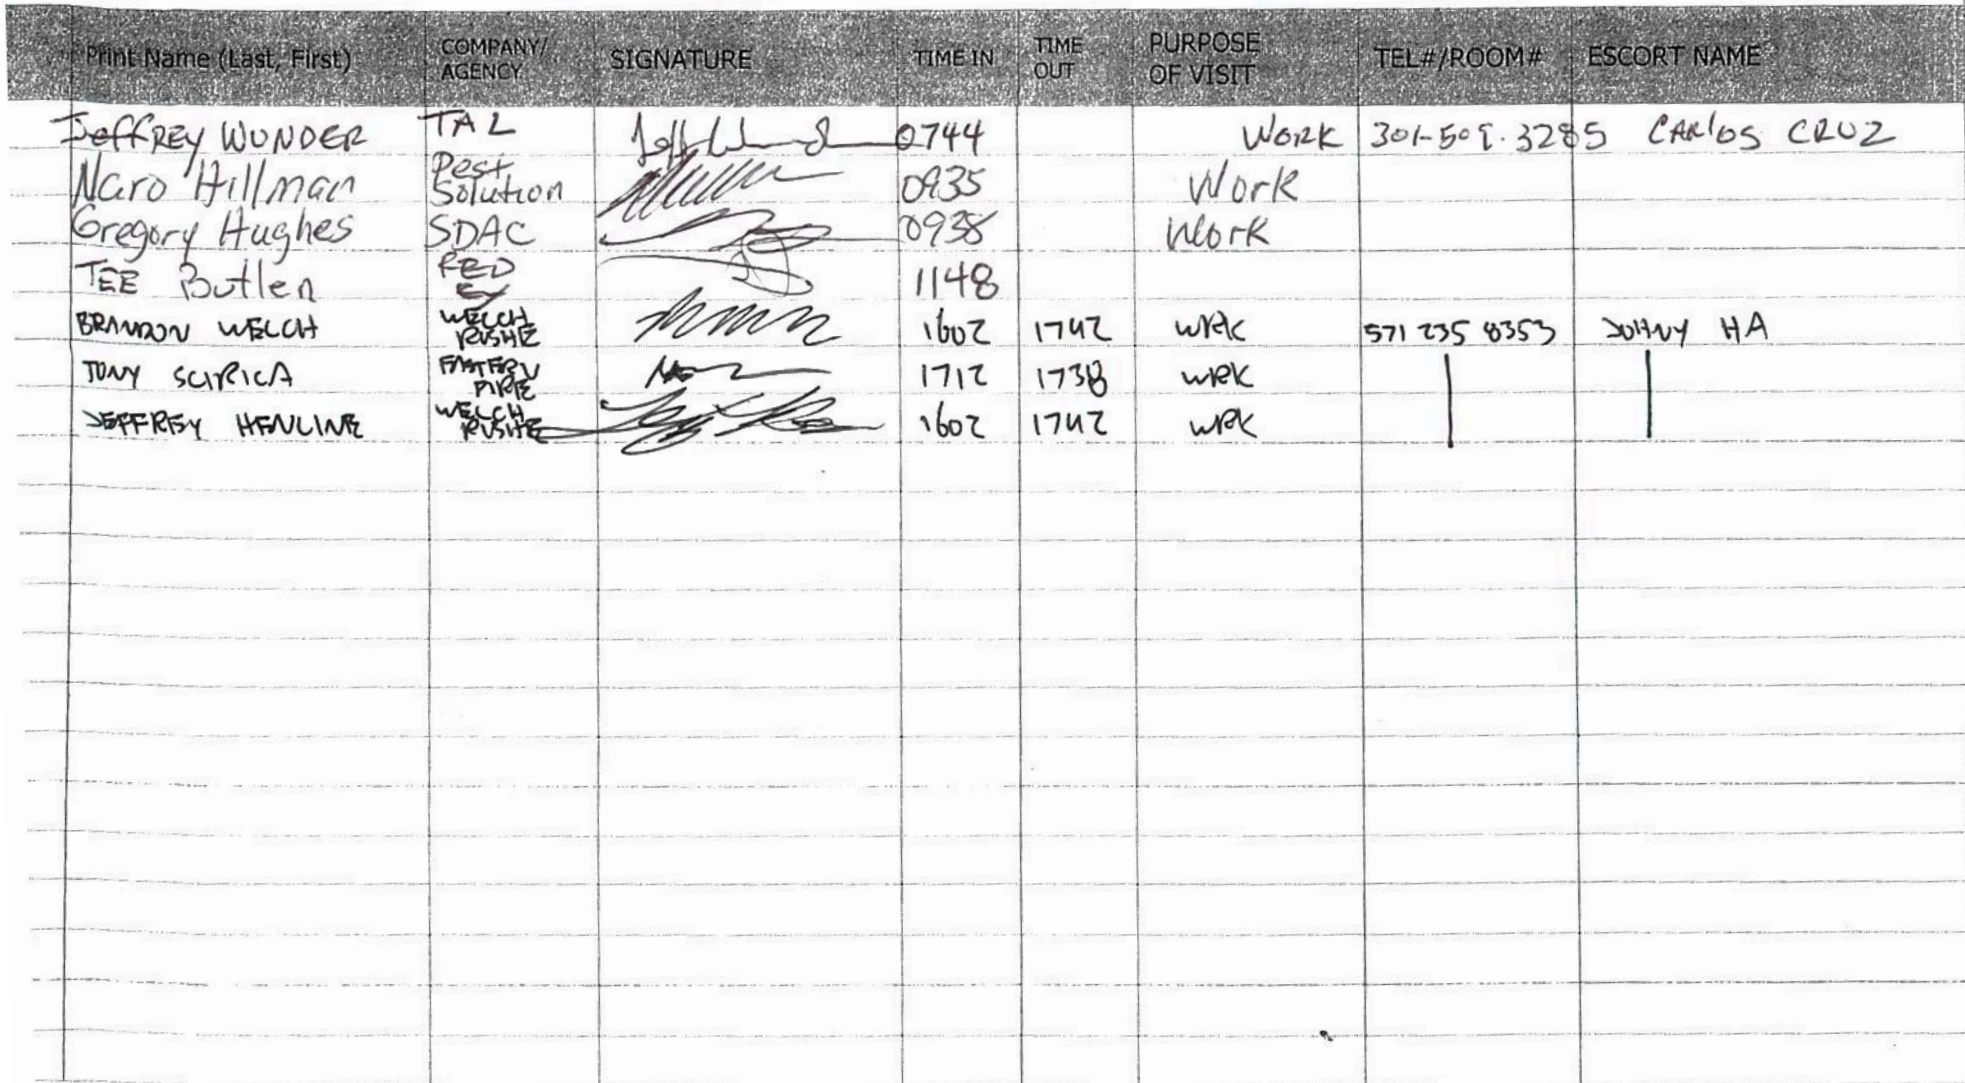 Print Name (Last, First) COMPANY/ AGENCY SIGNATURE TIME IN TIME OUT PURPOSE OF VISIT TEL#/ROOM# ESCORT NAME
Jeffrey WUNDER TAL 0744 WORK 301-509-3285 CARlOS CRUZ
Naro Hillman Pest Solution 0935 Work
Gregory Hughes SDAC 0938 Work
TEE Butler FED EX 1148
BRANDON WELCH WELCH RUSHE 1602 1742 WRK 571 235 8353 JOHNY HA
TONY SCIRICA EASTERN FIRE 1712 1738 WRK
JEFFREY HENLINE WELCH RUSHE 1602 1742 WRK